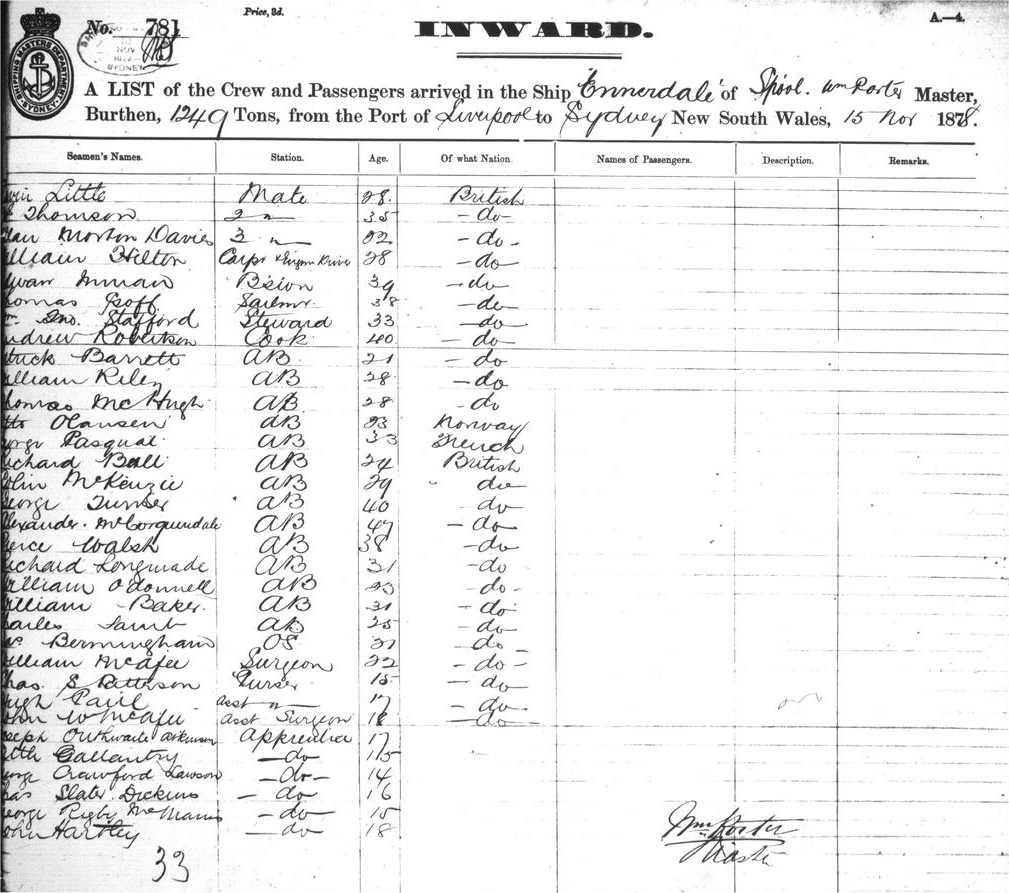 Price, 3d.
No. 781
INWARD.
A.—4.
SHIPPING MASTERS DEPARTMENT SYDNEY
NOV
SYDNEY
A LIST of the Crew and Passengers arrived in the Ship "Ennerdale" of L'pool. Wm Porter Master,
Burthen, 1249 Tons, from the Port of Liverpool to Sydney New South Wales, 15 Nov 1878.
Seamen's Names. Station. Age. Of what Nation. Names of Passengers. Description. Remarks.
Little Mate 28. British
Thomson 2 " 35 - do -
Morton Davies 3 " 22 - do -
illiam Hilton Carpr & Engine Driver 28 - do
Inman B'sion 39 - do
homas Goff Sailmr. 38 - do
Jno. Stafford Steward 33 - do
ndrew Robertson Cook 40 - do
trick Barrett AB 21 - do
illiam Riley AB 28 - do
homas McHugh AB 28 - do
tto Olausen AB 23 Norway
orge Pasqual AB 33 French
ichard Ball AB 24 British
olin McKenzie AB 29 do
eorge Turner AB 40 do
lexander McCorquendale AB 47 - do
ierce Walsh AB 38 - do
ichard Longmade AB 31 - do
illiam O'donnell AB 23 - do -
illiam Baker AB 31 - do
harles Lamb AB 25 - do
Bermingham OS 21 - do -
illiam McAfee Surgeon 22 - do -
has. S Patterson Purser 15 - do
ugh Paul asst " 17 - do
ohn W McAfee asst Surgeon 18 - do -
oseph Outhwaite Atkinson Apprentice 17
Gallantry - do 15
orge Crawford Lawson - do - 14
has Slater Dickins - do 16
eorge Rigby McManus - do 15
ohn Hartley - do 18
Wm Porter
Master
33